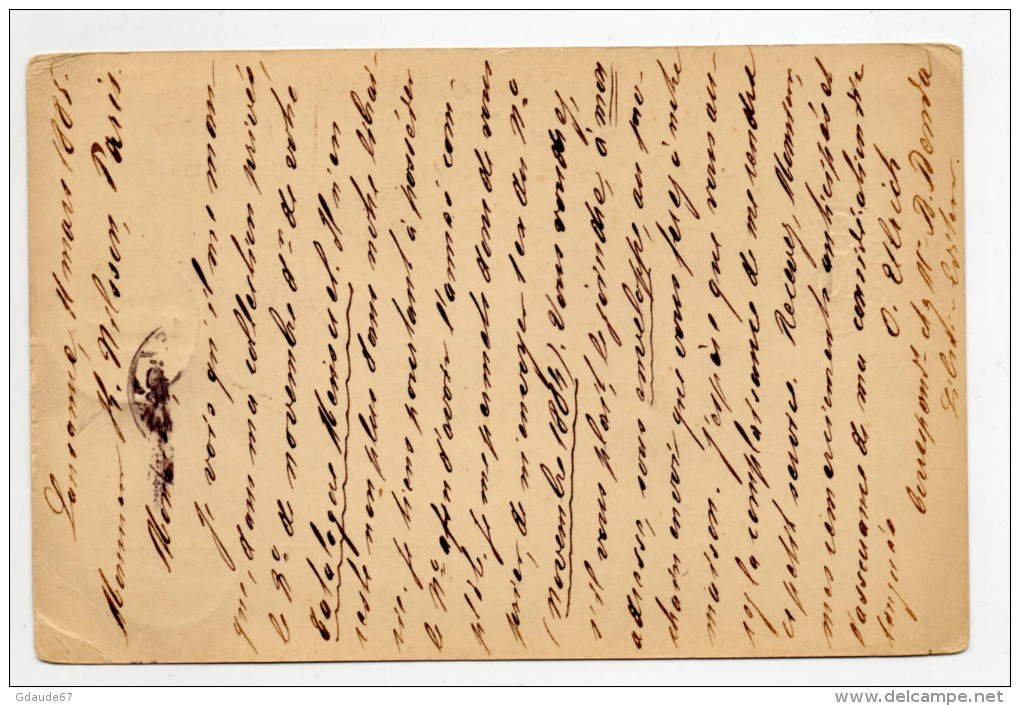 Lausanne, 11 mars 1885.
Monsieur N. Nilsson Paris
Monsieur
Je vois qu'il me man-
que, dans ma collection privée
le No. de novembre dr. de votre
Catalogue Mensuel. N'en
restant plus dans notre librai-
rie, je tiens pourtant à posséder
le No. afin d'avoir l'année com-
plète. Je me permets donc de vous
prier, de m'envoyer 1 ex. du No
(novembre 1884). Vous voudrez
s'il vous plaît le joindre, à mon
adresse, sous enveloppe au pro-
chain envoi que vous ferez à notre
maison. J'espère que vous au-
rez la complaisance de me rendre
ce petit service. Recevez Monsieur,
mes remerciements anticipés et
l'assurance de ma considération dis-
tinguée O. Elrich
Correspondt. chez Mr. B. Benda
Libr. Édit.
Gdaude67
www.delcampe.net